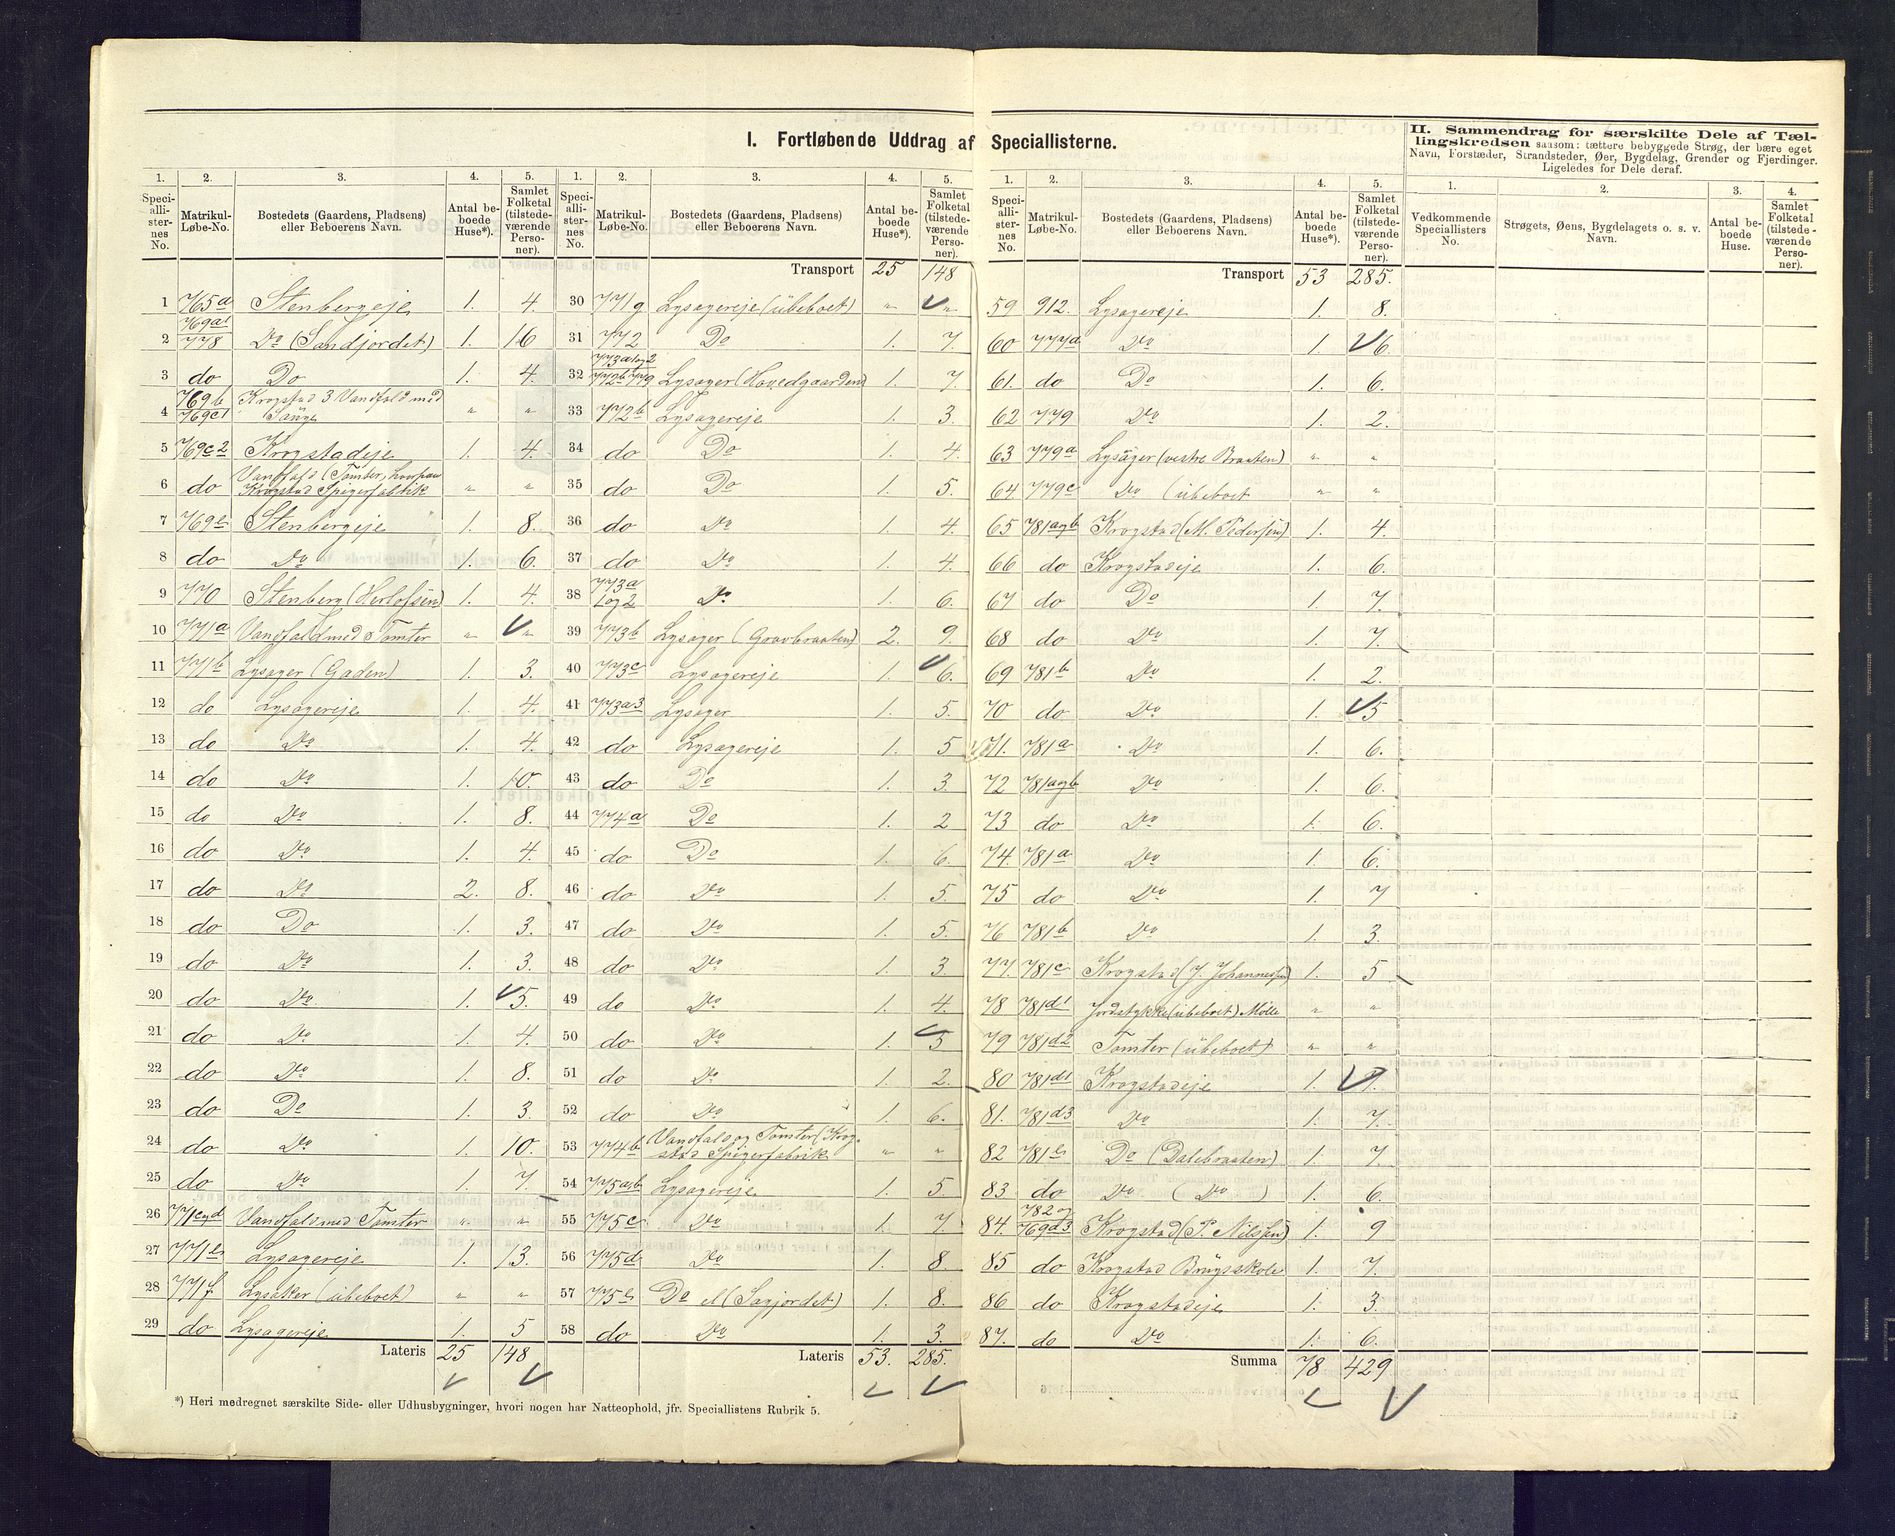 I. Fortløbende Uddrag af Speciallisterne.
II. Sammendrag for særskilte Dele af Tæl-
lingskredsen saasom: tættere bebyggede Strøg, der bære eget
Navn, Forstæder, Strandsteder, Øer, Bygdelag, Grender og Fjerdinger.
Ligeledes for Dele deraf.
1. 2. 3. 4. 5. 1. 2. 3. 4. 5. 1. 2. 3. 4. 5. 1. 2. 3. 4.
Speciallisternes No. Matrikul-Løbe-No. Bostedets (Gaardens, Pladsens) eller Beboerens Navn. Antal beboede Huse*). Samlet Folketal (tilstedeværende Personer).
Speciallisternes No. Matrikul-Løbe-No. Bostedets (Gaardens, Pladsens) eller Beboerens Navn. Antal beboede Huse*). Samlet Folketal (tilstedeværende Personer).
Speciallisternes No. Matrikul-Løbe-No. Bostedets (Gaardens, Pladsens) eller Beboerens Navn. Antal beboede Huse*). Samlet Folketal (tilstedeværende Personer).
Vedkommende Speciallisters No. Strøgets, Øens, Bygdelagets o. s. v. Navn. Antal beboede Huse. Samlet Folketal (tilstedeværende Personer).
1 765a Stenbergeje 1. 4.
2 769a1 778 Do (Sandjordet) 1. 16
3 do Do 1. 4.
4 769b 769c1 Krogstad 3 Vandfald med Sauge " "
5 769c2 Krogstadeje 1. 4.
6 do Vandfald (Tomter, hvorpaa Krogstad Spigerfabrik " "
7 769e Stenbergeje 1. 8.
8 do Do 1. 6.
9 770 Stenberg (Herlofsen) 1. 4.
10 771a Vandfald med Tomter " "
11 771b Lysager (Gaden) 1. 3.
12 do Lysagereje 1. 4.
13 do Do 1. 4.
14 do Do 1. 10.
15 do Do 1. 8.
16 do Do 1. 4.
17 do Do 2. 8.
18 do Do 1. 3.
19 do Do 1. 3.
20 do Do 1. 5.
21 do Do 1. 4.
22 do Do 1. 8.
23 do Do 1. 3.
24 do Do 1. 10.
25 do Do 1. 7
26 771c og d Vandfald med Tomter " "
27 771e Lysagereje 1. 13.
28 771f Lysaker (ubeboet) " "
29 do Lysagereje 1. 5
Lateris 25 148
Transport 25 148
30 771g Lysagereje (ubeboet) " "
31 772 Do 1. 7.
32 773a1og2 772b 779 Lysager (Hovedgaarden) 1. 7.
33 772b Lysagereje 1. 3.
34 do Do 1. 4.
35 do Do 1. 5.
36 do Do 1. 4.
37 do Do 1. 4.
38 773a 1og2 Do 1. 6.
39 773b Lysager (Gravbraaten) 2. 9.
40 773c Lysagereje 1. 6.
41 773a3 Lysager 1. 5.
42 do Lysagereje 1. 5
43 do Do 1. 3.
44 774a Do 1. 2
45 do Do 1. 6.
46 do Do 1. 5.
47 do Do 1. 5.
48 do Do 1. 3.
49 do Do 1. 4.
50 do Do 1. 5
51 do Do 1. 2.
52 do Do 1. 6.
53 774b Vandfald og Tomter (Krogstad Spigerfabrik " "
54 775a,b Lysagereje 1. 5
55 775c Do 1. 7.
56 775d Do 1. 8
57 775e Do el (Sagjordet) 1. 8.
58 do Do 1. 3.
Lateris 53. 285.
Transport 53 285.
59 912. Lysagereje 1. 8.
60 777d Do 1 6.
61. do Do 1. 6.
62 779 Do 1. 2.
63 779a Lysager (vestre Braaten) " "
64 779c Do (ubeboet " "
65 781agb Krogstad (M. Pedersen) 1. 4.
66 do Krogstadeje 1. 6.
67 do Do 1. 7.
68 do Do 1. 7.
69 781b Do 1. 2.
70 do Do 1. 5
71. 781a Do 1. 6.
72 781agb Do 1. 6.
73 do Do 1. 6.
74. 781a Do 1. 6.
75 do Do 1. 7
76 781b Do 1. 3.
77. 781c Krogstad (J. Johannesen) 1. 5
78 781d1 Jordstykke (ubeboet) Mølle " "
79 781d2 Tomter (ubeboet) " "
80 781d1 Krogstadeje 1. 7.
81. 781d3 Do 1. 7.
82 781e Do (Dalebraaten) 1. 7.
83 do Do (Do) 1. 6.
84. 782 og 769d3 Krogstad (P. Nilsen) 1. 9
85 do Krogstad Brugsskole 1. 7.
86 do Krogstadeje 1. 3.
87. do Do 1. 6.
Summa 78 429
*) Heri medregnet særskilte Side- eller Udhusbygninger, hvori nogen har Natteophold, jfr. Speciallistens Rubrik 5.